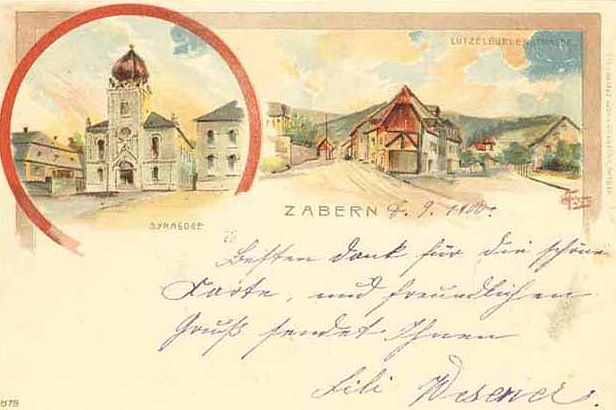 LÜTZELBURGERSTRASSE
SYNAGOGE
ZABERN 8. 9. 1900.
Besten Dank für die schöne
Karte, und freundlichen
Gruß sendet Ihnen
Lili
678